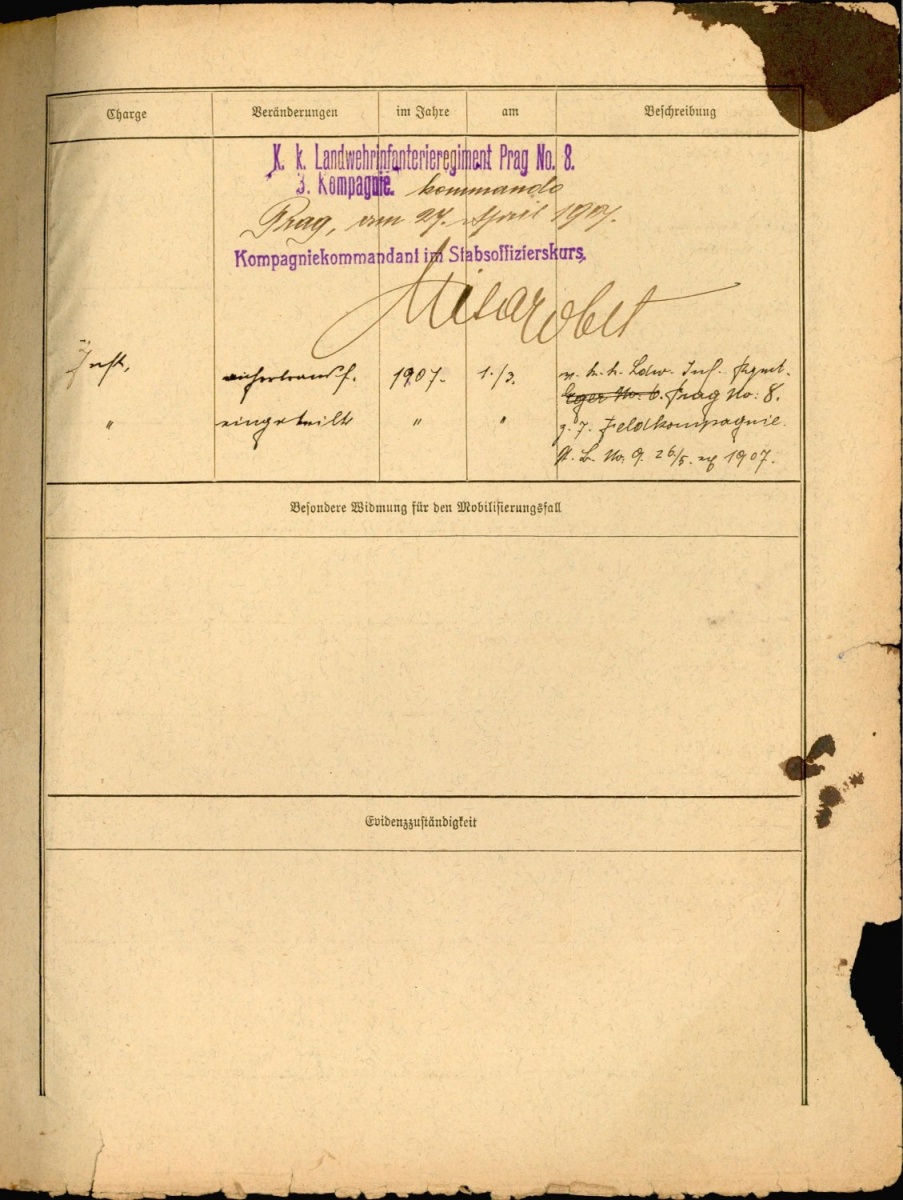 Charge Veränderungen im Jahre am Beschreibung
K. k. Landwehrinfanterieregiment Prag No. 8.
3. Kompagnie. kommando
Prag, am 27. April 1907.
Kompagniekommandant im Stabsoffizierskurs.
Inft. 1907. 1./3. v. k. k. Ldw. Inf. Rgmt.
Eger No: 6. Prag No: 8.
" eingeteilt " " z. 7. Feldkompagnie.
No. 9. 26/5. 1907.
Besondere Widmung für den Mobilisierungsfall
Evidenzzuständigkeit